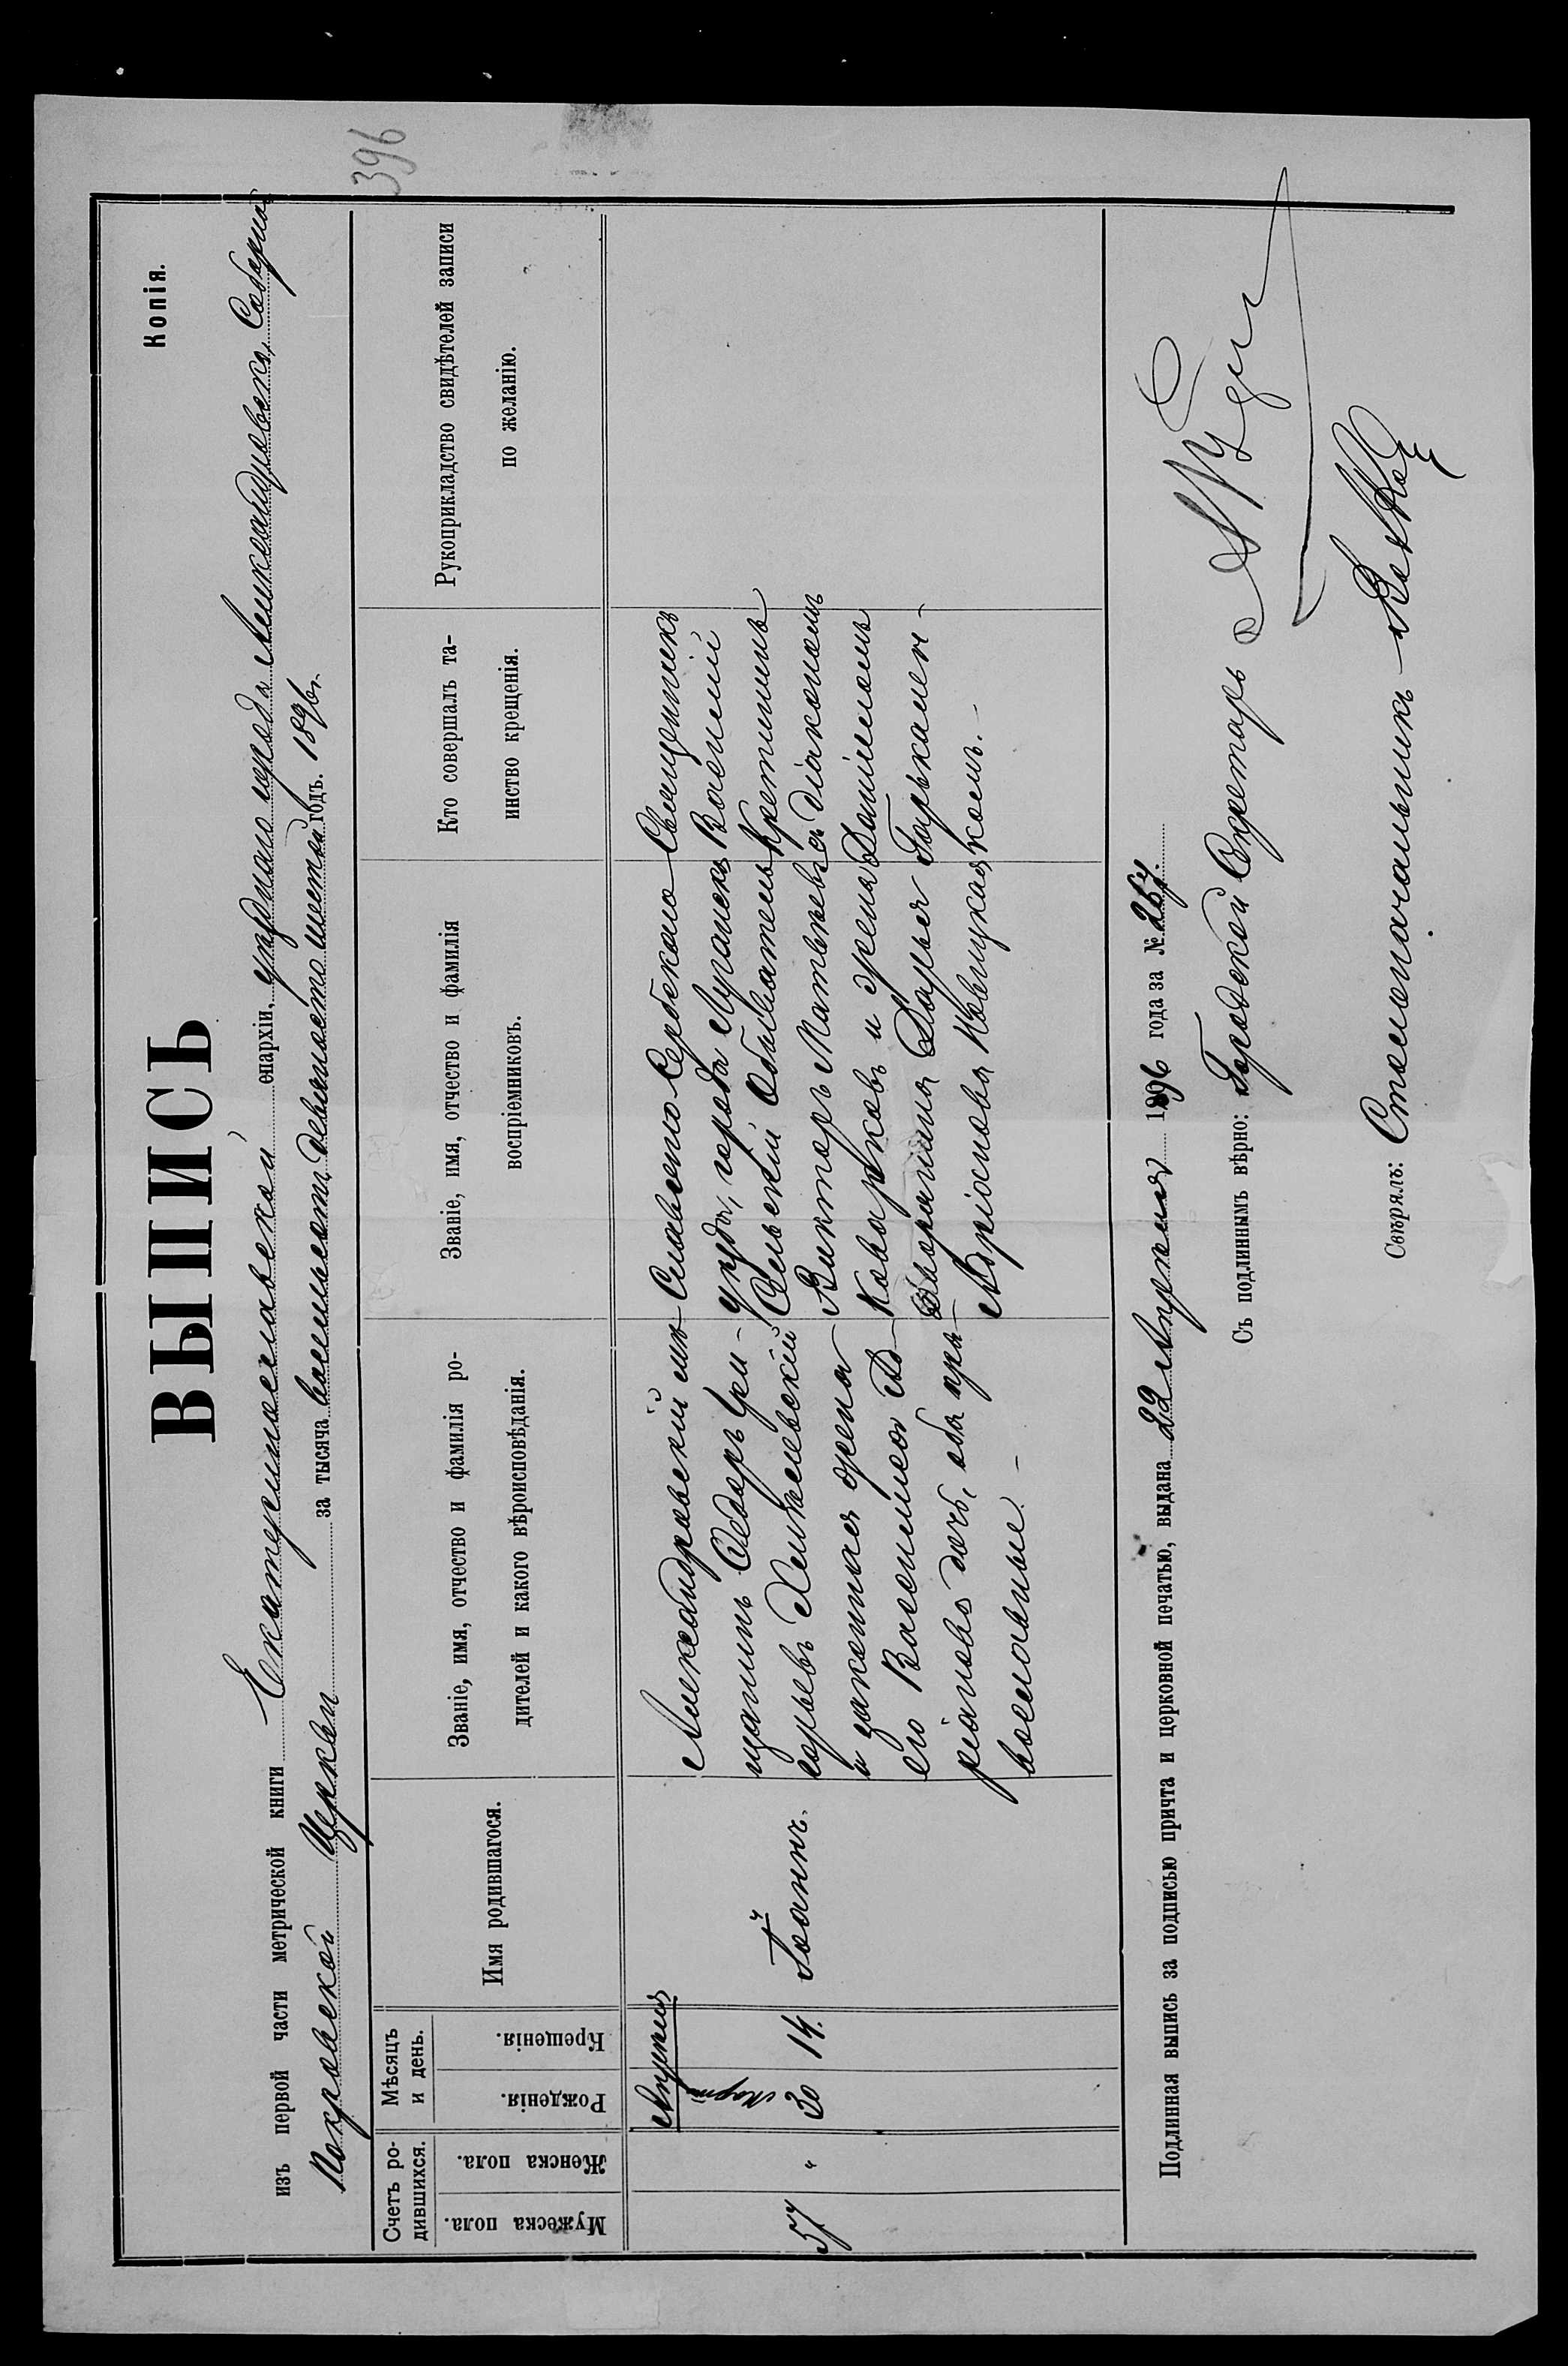 Копія.
396
ВЫПИСЬ
изъ первой части метрической книги Екатеринославской епархіи, уѣзднаго города Александровска, Соборной
Покровской Церкви за тысяча восемьсотъ девяносто шестой годъ. 1896 г.
Счетъ ро-
дившихся.
Мужеска пола.
Женска пола.
Мѣсяцъ
и день.
Рожденія.
Крещенія.
Имя родившагося.
Званіе, имя, отчество и фамилія ро-
дителей и какого вѣроисповѣданія.
Званіе, имя, отчество и фамилія
воспріемниковъ.
Кто совершалъ та-
инство крещенія.
Рукоприкладство свидѣтелей записи
по желанію.
57
"
Апрѣля
Март
30
14.
Іоаннъ.
Александровскій мѣ-
щанинъ Ѳедоръ Гри-
горьевъ Хмѣлевскій
и законная жена
его Василиса До-
ріанова доч., оба пра-
вославные. -
Славяно-Сербскаго
уѣзда, города Луганска
Сельскій Обыватель
Викторъ Матвѣевъ
Коваржовъ и жена
Дворянина Дарья
Доріанова Новицкая
Священникъ
Василій
Кретининъ
съ діакономъ
Даніиломъ
Гарькамен-
комъ. -
Подлинная выпись за подписью причта и церковной печатью, выдана 22 Апрѣля 1896 года за № 267.
Съ подлиннымъ вѣрно: Городской Секретарь
Свѣрялъ: Столоначальникъ